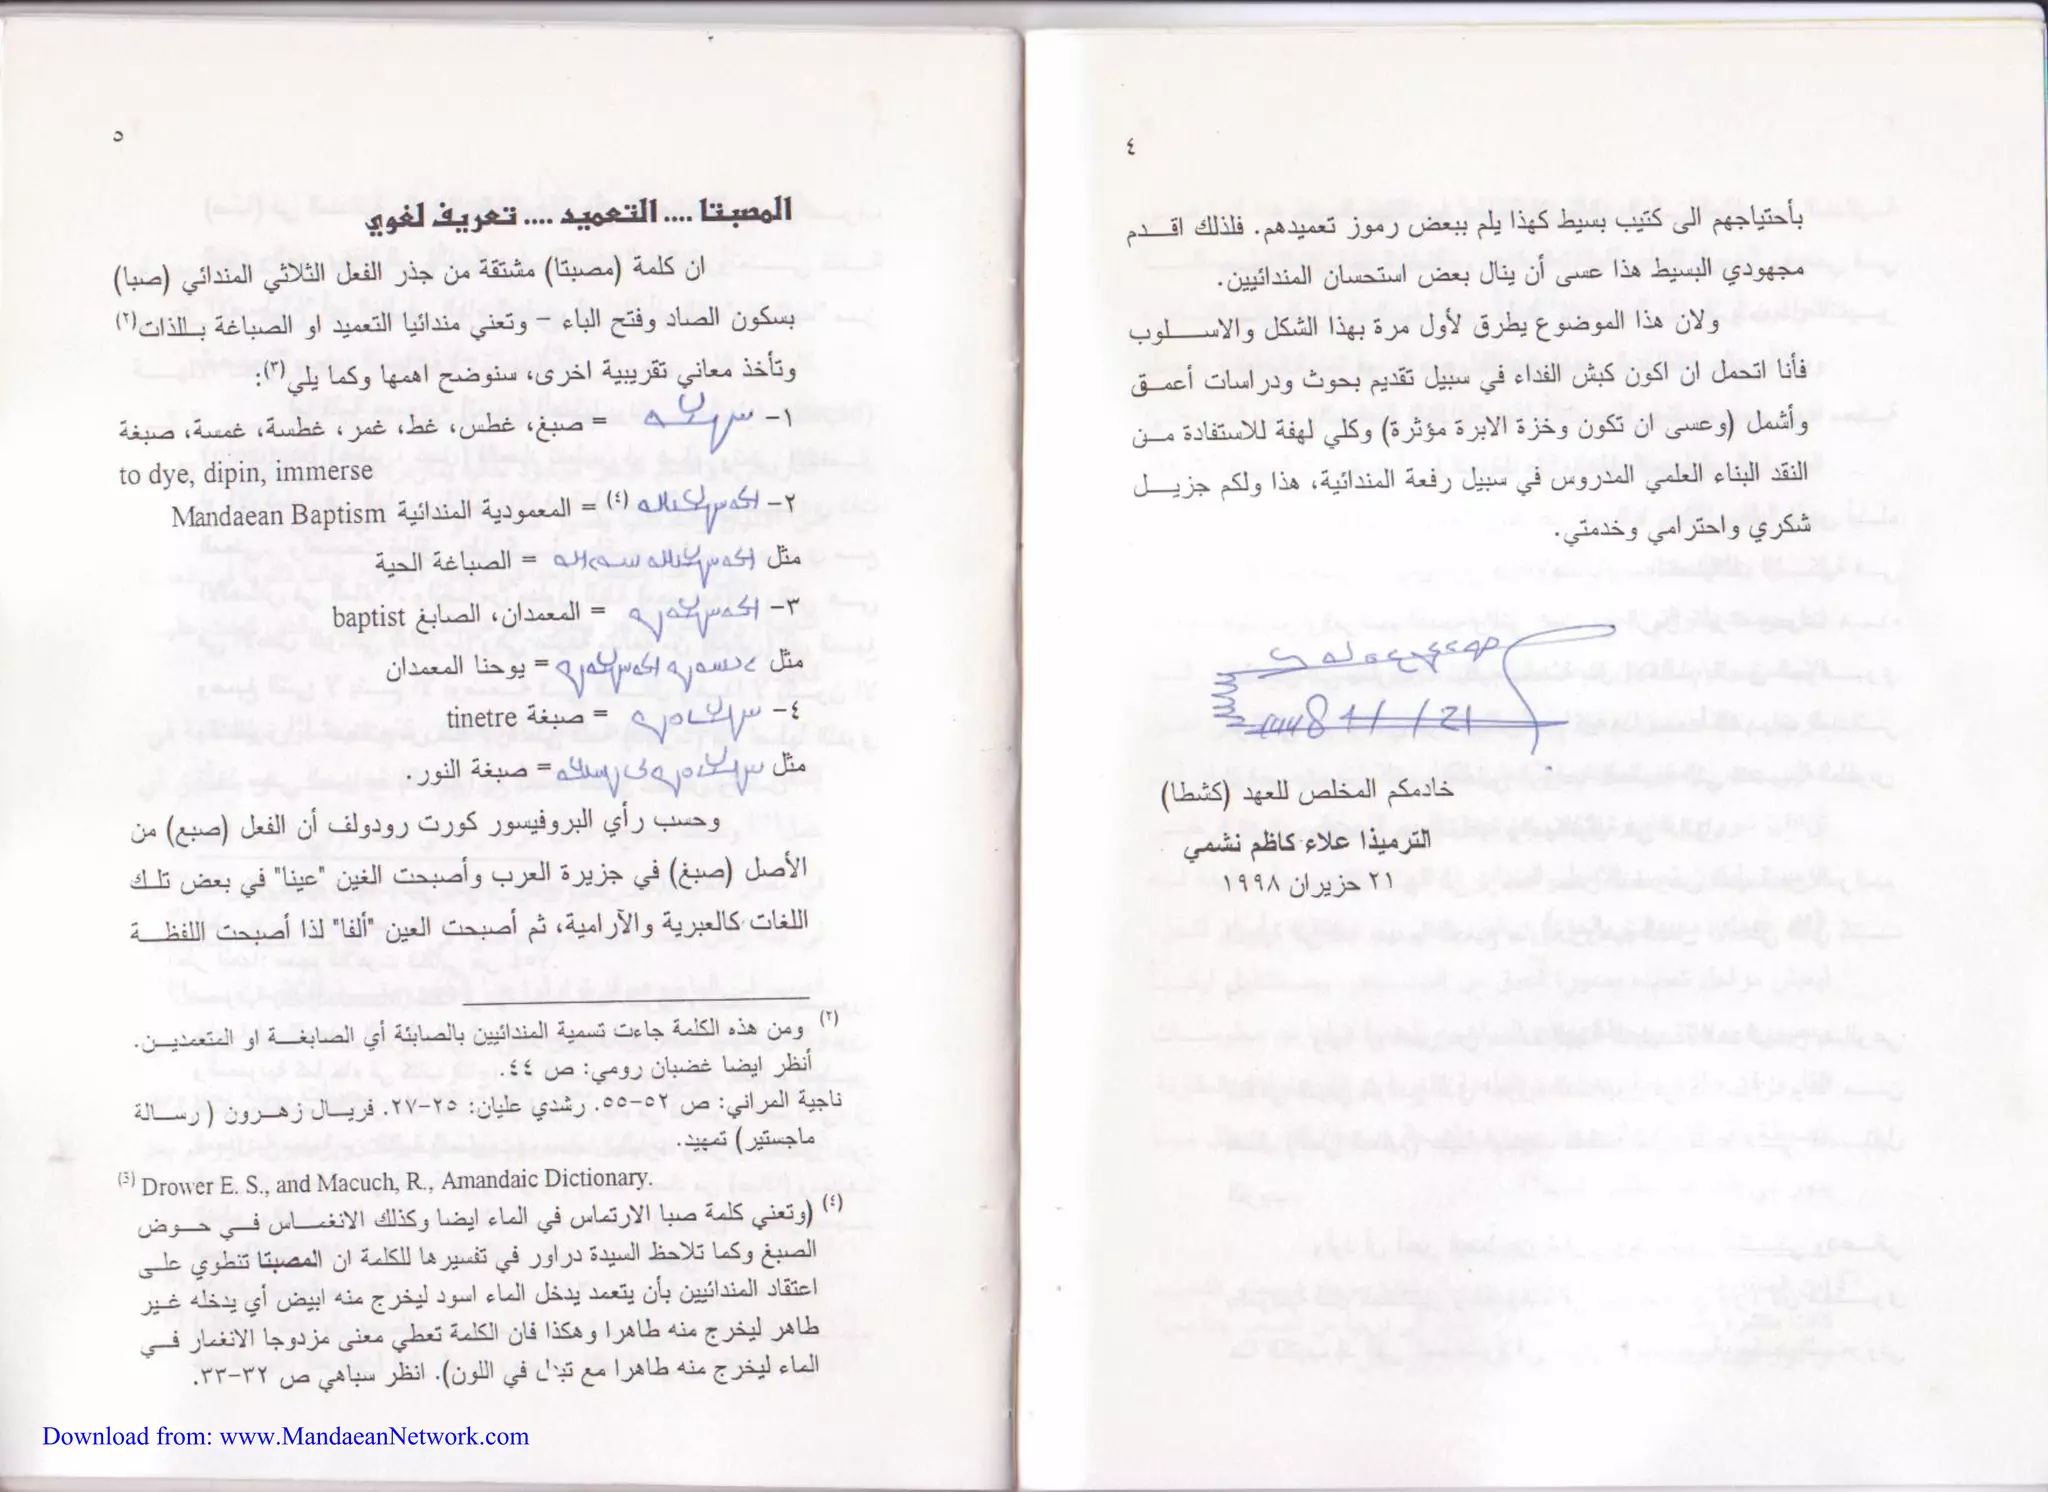 ٤
بأحتياجهم الى كتيب بسيط كهذا يلم ببعض رموز تعميدهم. فلذلك اقدم
مجهودي البسيط هذا عسى أن ينال بعض استحسان المندائيين.
ولان هذا الموضوع يطرق لأول مرة بهذا الشكل والاسلوب
فأنا اتحمل ان اكون كبش الفداء في سبيل تقديم بحوث ودراسات أعمق
وأشمل (وعسى ان تكون وخزة الإبرة مؤثرة) وكلي لهفة للاستفادة من
النقد البناء العلمي المدروس في سبيل رفعة المندائية، هذا ولكم جزيل
شكري واحترامي وخدمتي.
خادمكم المخلص للعهد (كشطا)
الترميذا علاء كاظم نشمي
٢١ حزيران ١٩٩٨
٥
المصبتا .... التعميد .... تعريف لغوي
ان كلمة (مصبتا) مشتقة من جذر الفعل الثلاثي المندائي (صبا)
بسكون الصاد وفتح الباء – وتعني مندائيا التعميد او الصباغة بالذات(٢)
وتأخذ معاني تقريبية اخرى، سنوضح اهمها وكما يلي(٣):
١- = صبغ، غطس، غط، غمر، غطسة، غمسة، صبغة
to dye, dipin, immerse
٢- (٤) = المعمودية المندائية Mandaean Baptism
مثل = الصباغة الحية
٣- = المعمدان، الصابغ baptist
مثل = يوحنا المعمدان
٤- = صبغة tinetre
مثل = صبغة النور.
وحسب رأي البروفيسور كورت رودولف أن الفعل (صبع) من
الأصل (صبغ) في جزيرة العرب وأصبحت الغين "عينا" في بعض تلك
اللغات كالعبرية والآرامية، ثم أصبحت العين "ألفا" لذا أصبحت اللفظة
(٢) ومن هذه الكلمة جاءت تسمية المندائيين بالصابئة أي الصابغة او المتعمدين.
أنظر ايضا غضبان رومي: ص ٤٤.
ناجية المراني: ص ٥٢-٥٥. رشدي عليان: ٢٥-٢٧. فريال زهرون (رسالة
ماجستير) تمهيد.
(3) Drower E. S., and Macuch, R., Amandaic Dictionary.
(٤) (وتعني كلمة صبا الارتماس في الماء ايضا وكذلك الانغماس في حوض
الصبغ وكما تلاحظ السيدة دراور في تفسيرها للكلمة ان المصبتا تنطوي على
اعتقاد المندائيين بأن يتعمد يدخل الماء اسود ليخرج منه ابيض أي يدخله غير
طاهر ليخرج منه طاهرا وهكذا فان الكلمة تعطي معنى مزدوجا الانغمار في
الماء ليخرج منه طاهرا مع في اللون). انظر سباهي ص ٣٢-٣٣.
Download from: www.MandaeanNetwork.com